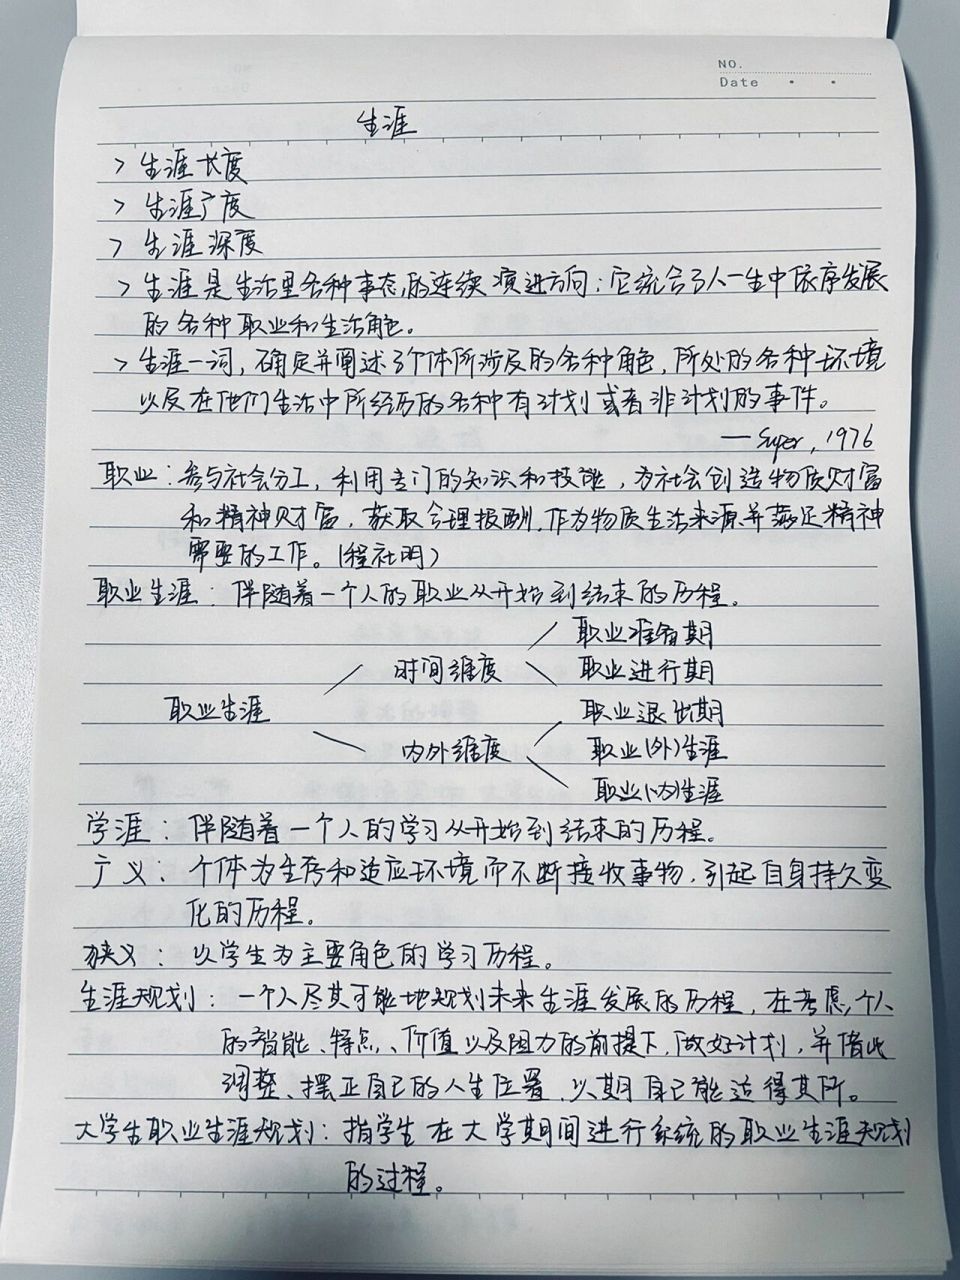 NO.
Date
生涯
> 生涯长度
> 生涯广度
> 生涯深度
> 生涯是生活里各种事态的连续演进方向：它统合了人一生中依序发展
的各种职业和生活角色。
> 生涯一词，确定并阐述了个体所涉及的各种角色，所处的各种环境
以及在他们生活中所经历的各种有计划或者非计划的事件。
— Super, 1976
职业：参与社会分工，利用专门的知识和技能，为社会创造物质财富
和精神财富，获取合理报酬，作为物质生活来源并满足精神
需要的工作。(程社明)
职业生涯：伴随着一个人的职业从开始到结束的历程。
职业准备期
时间维度 职业进行期
职业生涯 职业退出期
内外维度 职业(外)生涯
职业(内)生涯
学涯：伴随着一个人的学习从开始到结束的历程。
广义：个体为生存和适应环境而不断接收事物，引起自身持久变
化的历程。
狭义：以学生为主要角色的学习历程。
生涯规划：一个人尽其可能地规划未来生涯发展的历程，在考虑个人
的智能、特点、价值以及阻力的前提下，做好计划，并借此
调整、摆正自己的人生位置，以期自己能适得其所。
大学生职业生涯规划：指学生在大学期间进行系统的职业生涯规划
的过程。